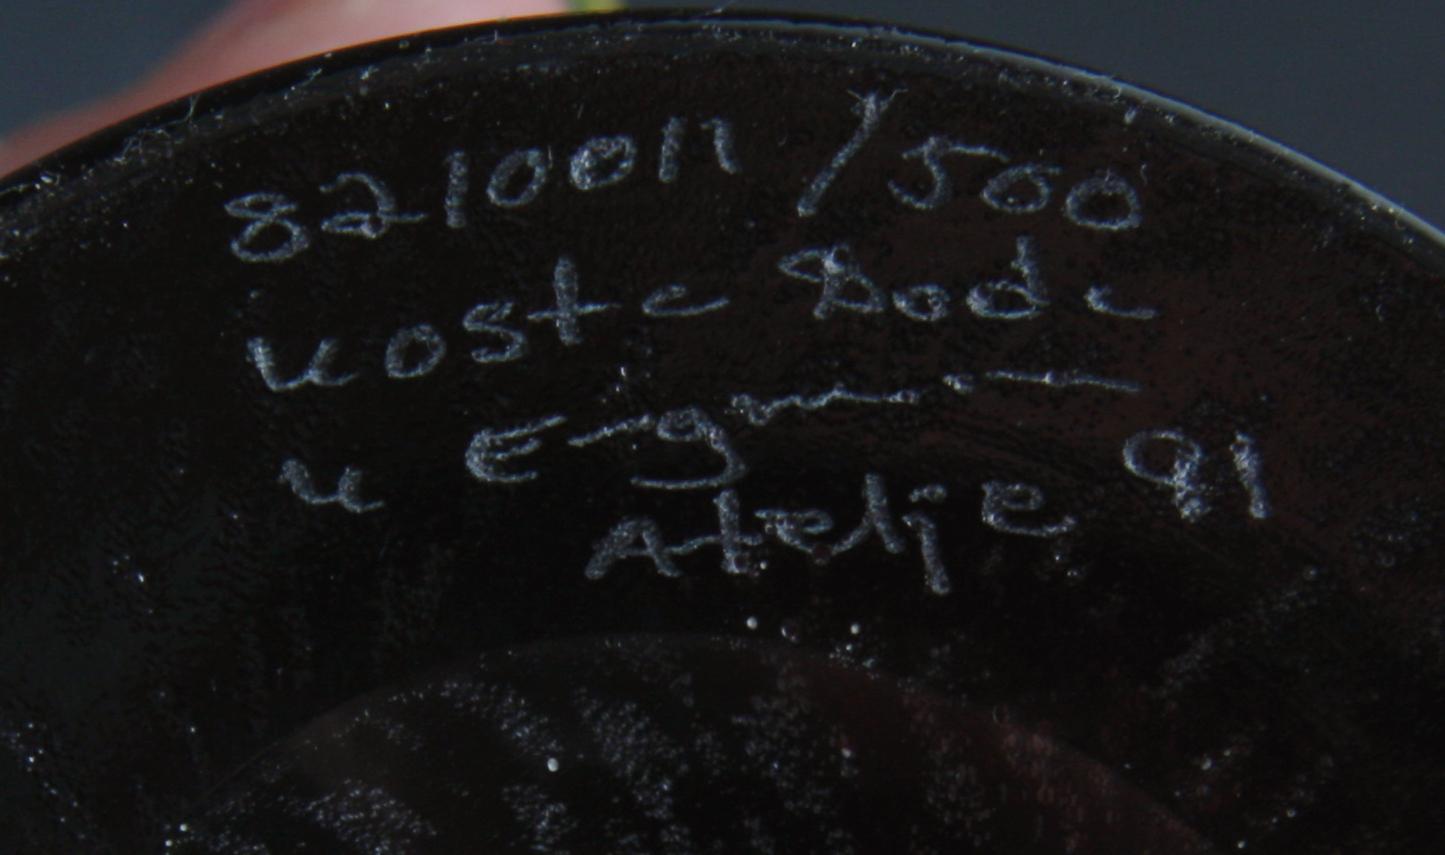 8210011/500
Kosta Boda
K Engman
Ateljé 91